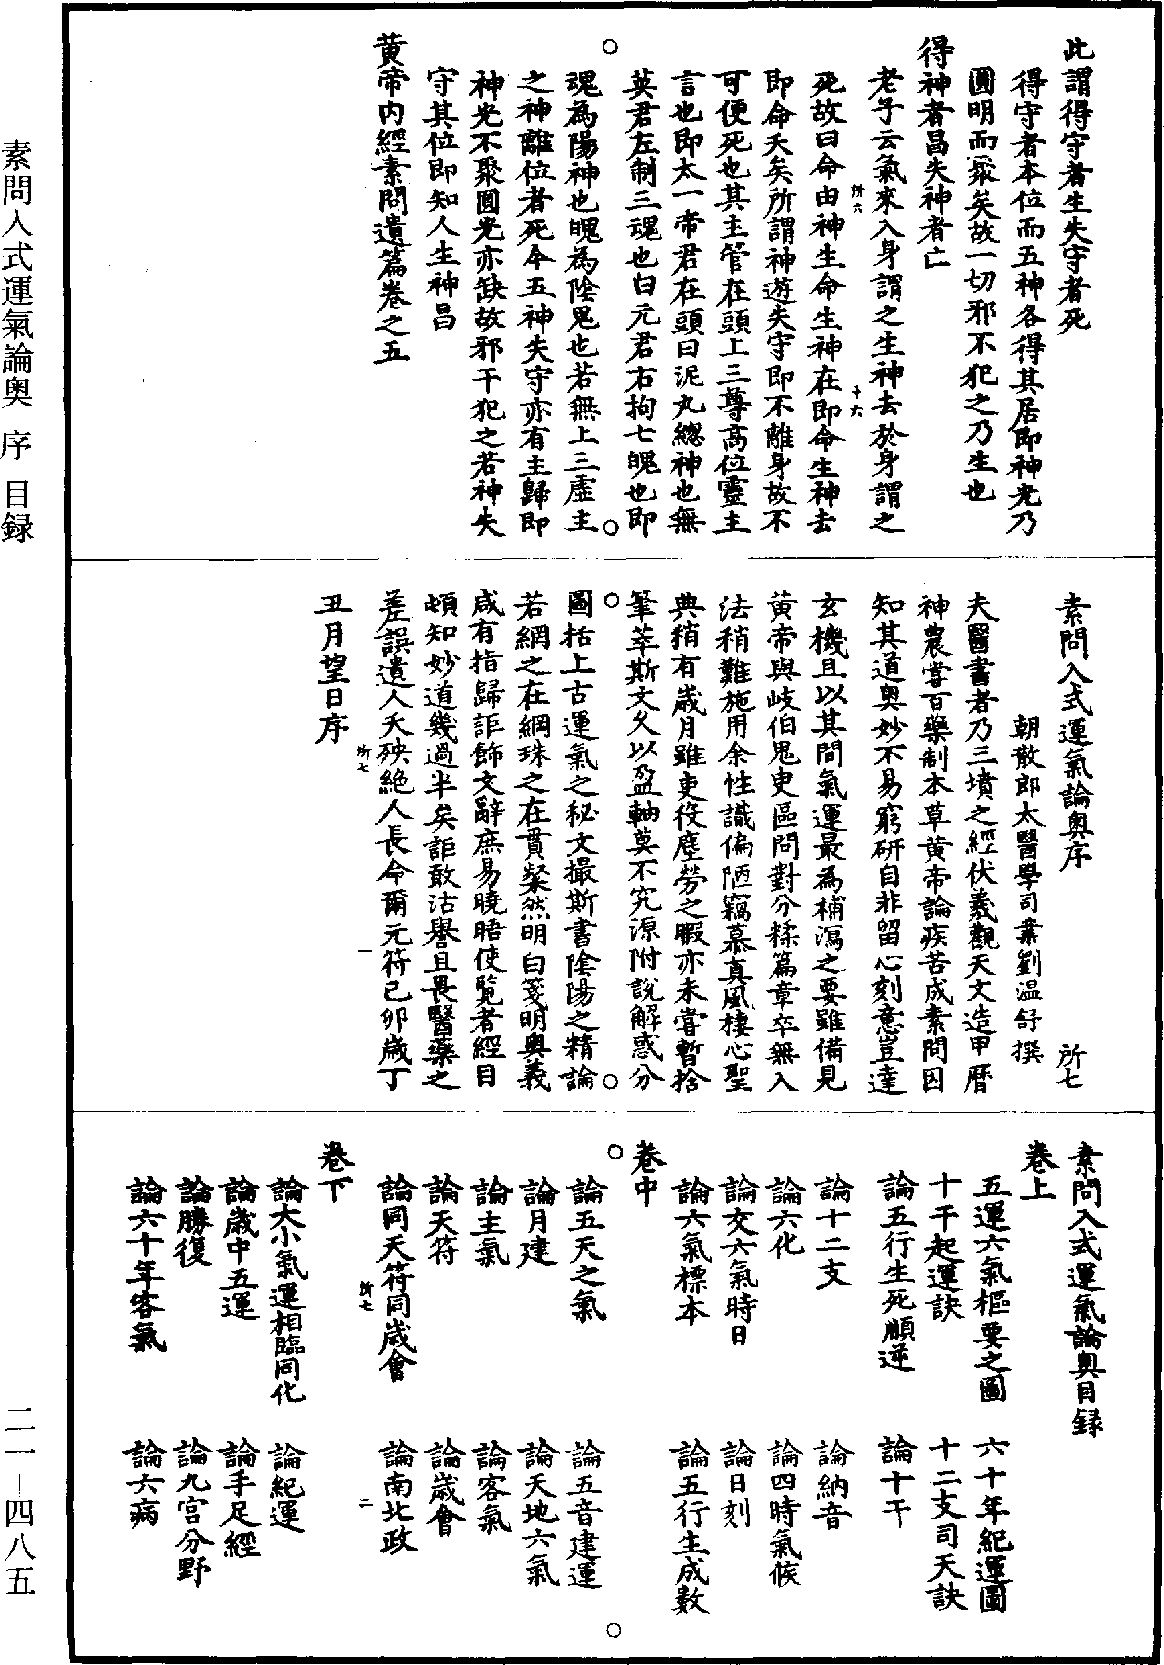 此謂得守者生失守者死
得守者本位而五神各得其居即神光乃
圓明而聚矣故一切邪不犯之乃生也
得神者昌失神者亡
老子云氣來入身謂之生神去於身謂之
死故曰命由神生命生神在即命生神去
即命夭矣所謂神遊失守即不離身故不
可便死也其主管在頭上三尊高位靈主
言也即太一帝君在頭曰泥丸總神也無
英君左制三魂也白元君右拘七魄也即
魂為陽神也魄為陰鬼也若無上三虛主
之神離位者死今五神失守亦有主歸即
神光不聚圓光亦缺故邪干犯之若神失
守其位即知人生神昌
黃帝内經素問遺篇卷之五
所六
十六
素問入式運氣論奧序
所七
朝散郎太醫學司業劉温舒撰
夫醫書者乃三墳之經伏羲觀天文造甲曆
神農嘗百藥制本草黃帝論疾苦成素問因
知其道奧妙不易窮研自非留心刻意豈達
玄機且以其間氣運最為補瀉之要雖備見
黃帝與岐伯鬼臾區問對分糅篇章卒無入
法稍難施用余性識偏陋竊慕真風棲心聖
典稍有歲月雖吏役塵勞之暇亦未嘗暫捨
筆萃斯文久以盈軸莫不究源附說解惑分
圖括上古運氣之秘文撮斯書陰陽之精論
若網之在綱珠之在貫粲然明白箋明奧義
咸有指歸詎飾文辭庶易曉晤使覽者經目
頓知妙道幾過半矣詎敢沽譽且畏醫藥之
差誤遺人夭殃絕人長命爾元符己卯歲丁
丑月望日序
所七
一
素問入式運氣論奧目録
卷上
五運六氣樞要之圖 六十年紀運圖
十干起運訣 十二支司天訣
論五行生死順逆 論十干
論十二支 論納音
論六化 論四時氣候
論交六氣時日 論日刻
論六氣標本 論五行生成數
卷中
論五天之氣 論五音建運
論月建 論天地六氣
論主氣 論客氣
論天符 論歲會
論同天符同歲會 論南北政
所七
二
卷下
論大小氣運相臨同化 論紀運
論歲中五運 論手足經
論勝復 論九宫分野
論六十年客氣 論六病
素問入式運氣論奧 序 目録
二一—四八五